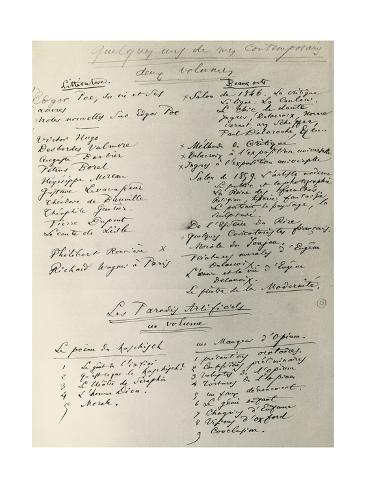 Quelques uns de mes Contemporains
deux volumes
Littérature.
Edgar Poe, sa vie et ses
œuvres
Notes nouvelles sur Edgar Poe
Victor Hugo
Desbordes Valmore
Auguste Barbier
Petrus Borel
Hégésippe Moreau
Gustave Levavasseur
Théodore de Banville
Théophile Gautier
Pierre Dupont
Leconte de Lisle
Philibert Rouvière x
Richard Wagner à Paris
Beaux arts
x Salon de 1846. La critique
Le ligne. La Couleur.
Le Chic. Le doute
Ingres, Delacroix, Horace
Vernet, Ary Scheffer,
Paul Delaroche, &
x Méthode de Critique
x Delacroix à l'exposition universelle
x Ingres à l'exposition universelle
Salon de 1859. L'artiste moderne
Le public et la photographie
La Reine des facultés
Religion, histoire, fantaisie
Le portrait, le paysage, la
sculpture
De l'Essence du Rire
Quelques Caricaturistes français.
Morale du Joujou
Peintures murales d'Eugène
Delacroix.
L'œuvre et la vie d'Eugène
Delacroix.
Le peintre de la Modernité.
Les Paradis Artificiels
un volume
Le poème du Haschisch
1 Le goût de l'infini
2 Qu'est-ce que le Haschisch?
3 Le théâtre de Séraphin
4 L'homme Dieu.
5 Morale.
un Mangeur d'Opium.
1 précautions oratoires.
2 Confessions préliminaires
3 Voluptés de l'opium
4 Tortures de l'opium
5 un faux dénouement
6 Le génie enfant
7 Chagrins d'Enfance
8 Visions d'Oxford
9 Conclusion.